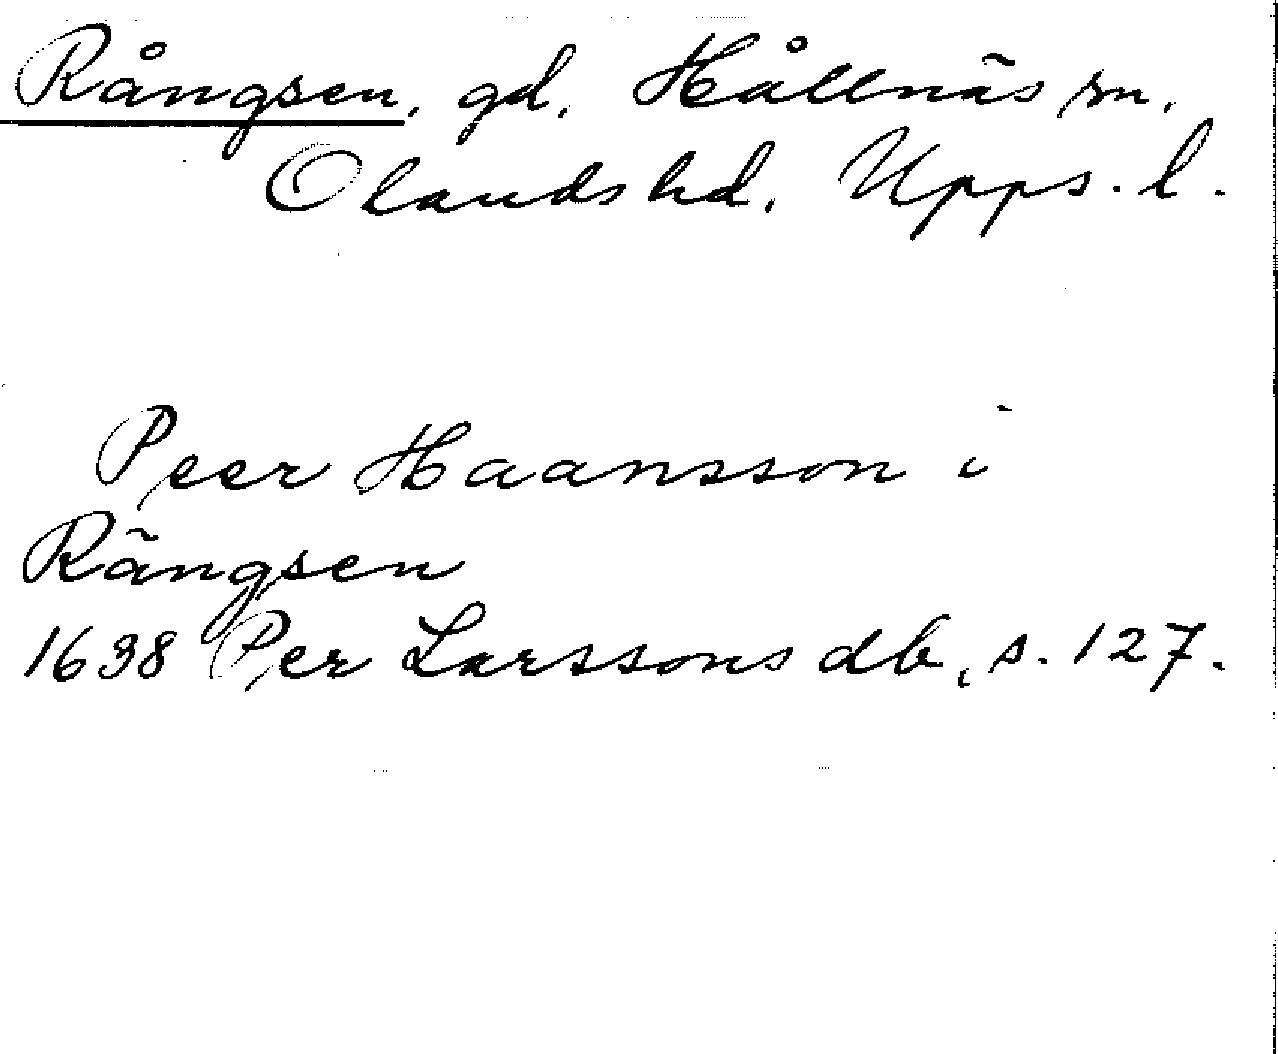 Rångsen, gd, Hållnäs sn,
Olands hd, Upps. l.
Peer Haansson i
Rängsen
1638 Per Larssons db, s. 127.